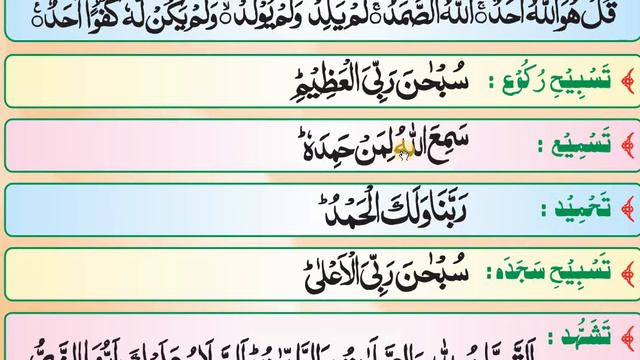 قُلْ هُوَ اللّٰهُ اَحَدٌ ۚ اَللّٰهُ الصَّمَدُ ۚ لَمْ يَلِدْ وَلَمْ يُوْلَدْ ۙ وَلَمْ يَكُنْ لَّهٗ كُفُوًا اَحَدٌ
تَسْبِيْحِ رُكُوْع : سُبْحٰنَ رَبِّيَ الْعَظِيْمِؕ
تَسْمِيْع : سَمِعَ اللّٰهُ لِمَنْ حَمِدَهٗؕ
تَحْمِيْد : رَبَّنَا وَلَكَ الْحَمْدُؕ
تَسْبِيْحِ سَجَدَه : سُبْحٰنَ رَبِّيَ الْاَعْلٰىؕ
تَشَهُّد :